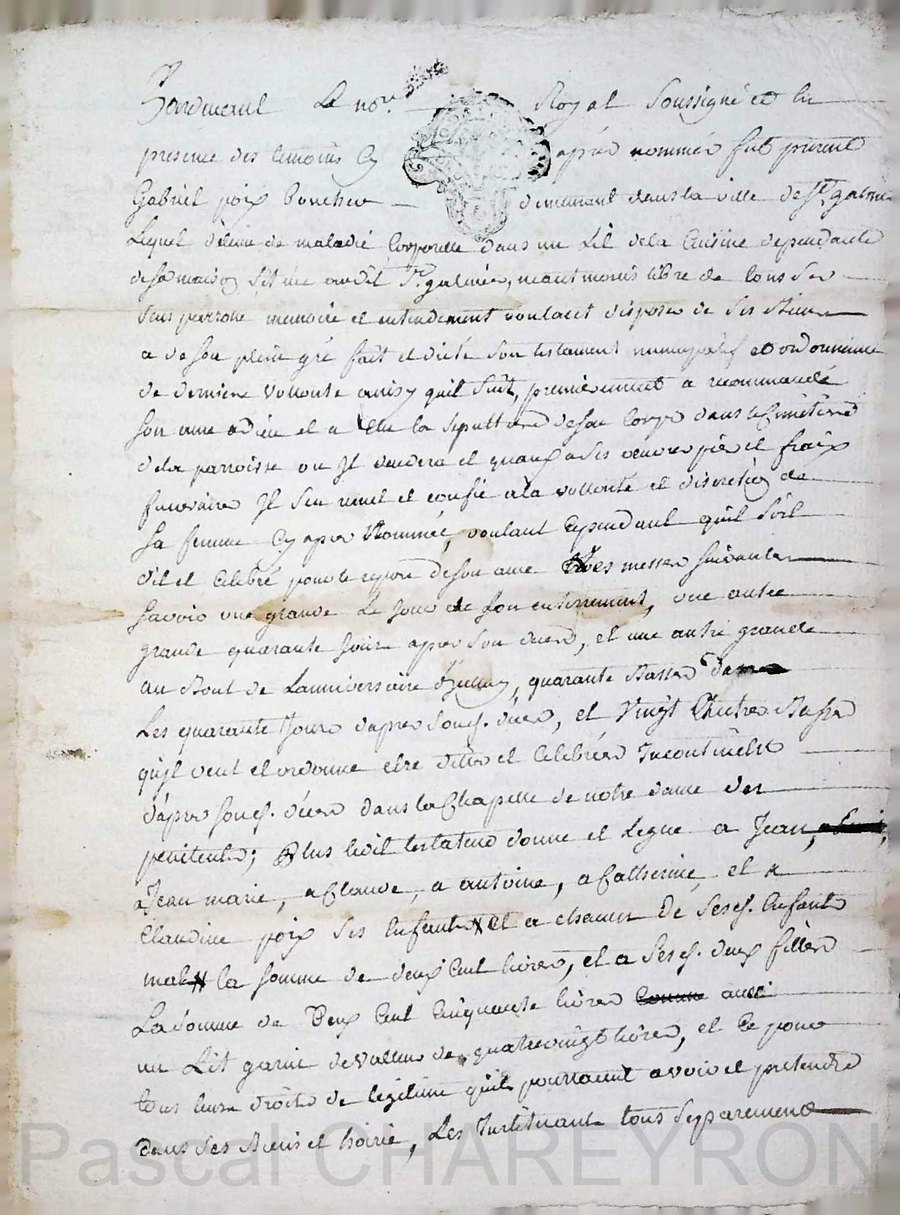 Pardevant Le no.re Royal Soussigné et En
presence des temoins Cy après nommés fut present
Gabriel poix Boucher demeurant dans la ville de St. galmier
Lequel détenu de maladie Corporelle dans un Lit de la Cuisine dependante
de sa maison Située audit St. galmier, neantmoins libre de tous ses
Sens parrolle memoire et entendement voulant disposer de Ses Biens
a de son plein gré fait et dicté Son testament nuncupatif et ordonnance
de derniere vollonté ainsy quil Suit, premierement a recommandé
Son ame a dieu et a Elu la Sepulture de son Corps dans le Cimetiere
de la parroisse ou Il decedera et quand a Ses oeuvres pies et fraix
funeraire Il Sen remet et confie a la vollonté et discretion de
Sa femme Cy apres Nommée, voulant Cependant quil Soit
dit et Celebré pour le repos de son ame les messes Suivantes
Savoir une grande Le Jour de Son enterrement, une autre
grande quarante Jours apres Son deces, et une autre grande
au Bout de Lanniversaire quarante Basses dans
Les quarante Jours dapres Sond. deces, et Vingt Autres Basses
quil veut et ordonne etre dittes et Celebrées Incontinent
dapres Sond. déces dans la Chapelle de notre dame des
penitents; Plus ledit testateur donne et Legue a Jean,
a Jean marie, a Claude, a antoine, a Catherine, et a
Claudine poix Ses Enfants et a chacun de Sesd. Enfants
males la Somme de deux Cent livres, et a Sesd. deux filles
La Somme de Deux Cent Cinquante livres aussi
un Lit garni de valleur de quatrevingt livres, et Ce pour
tous leurs droits de legitime quils pourraient avoir et pretendre
dans Ses Biens et hoirie, Les Instituant tous Separement
Pascal CHAREYRON